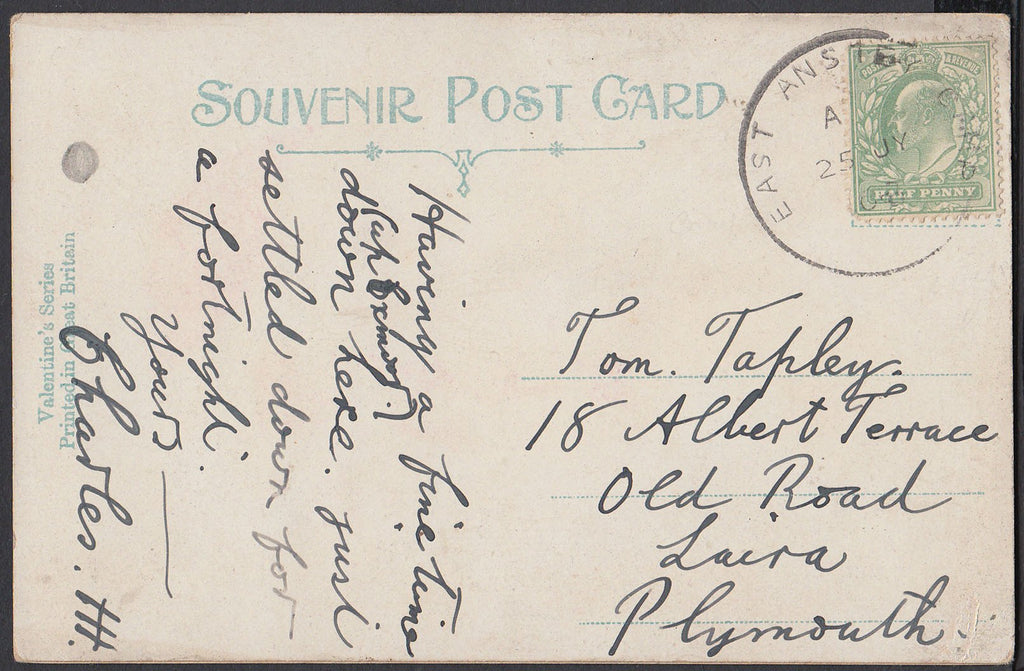 SOUVENIR POST CARD
EAST ANSTEY
A
25 JY
POSTAGE & REVENUE
HALF PENNY
Having a fine time
(up Exmoor)
down here. just
settled down for
a fortnight.
Yours
Charles. H.
Valentine's Series
Printed in Great Britain
Tom. Tapley.
18 Albert Terrace
Old Road
Laira
Plymouth.